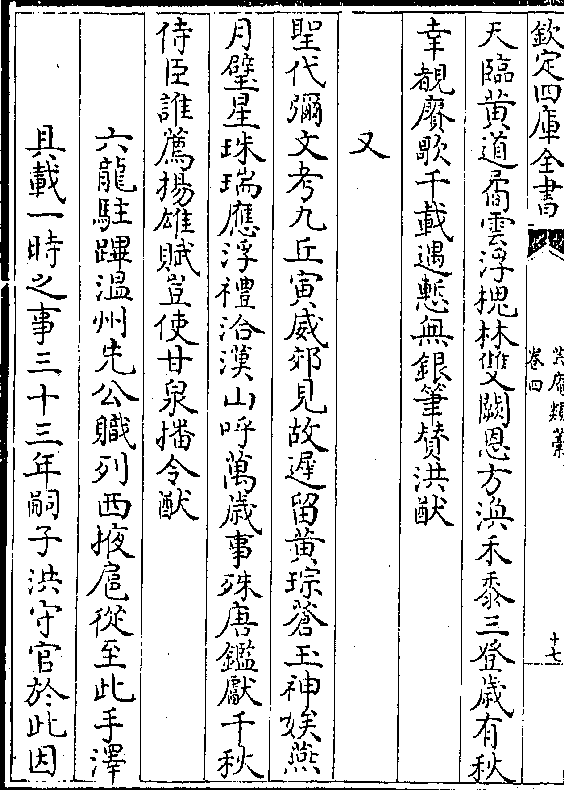 欽定四庫全書
卷四
十七
天臨黄道矞雲浮槐林雙闕恩方渙禾黍三登歳有秋
幸覩賡歌千載遇慙無銀筆賛洪猷
又
聖代彌文考九丘寅威郊見故遲留黄琮蒼玉神娭燕
月璧星珠瑞應浮禮洽漢山呼萬歳事殊唐鑑獻千秋
侍臣誰薦揚雄賦豈使甘泉播令猷
六龍駐蹕温州先公職列西掖扈從至此手澤
具載一時之事三十三年嗣子洪守官於此因